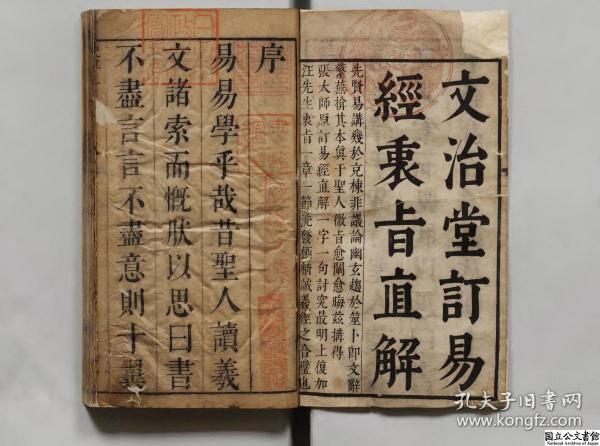 文治堂訂易
經衷旨直解
先賢易講幾於充棟非議論幽玄趨於筮卜即文辭
繁蕪捨其本眞于聖人微旨愈闡愈晦茲搆得
張太師原訂易經直解一字一句討究最明上復如
汪先生衷旨一章一節洗發極精誠羲經之合璧也
序
易易學乎哉昔聖人讀羲
文諸索而慨肰以思曰書
不盡言言不盡意則十翼
孔夫子旧书网
www.kongfz.com
国立公文書館
National Archives of Japan